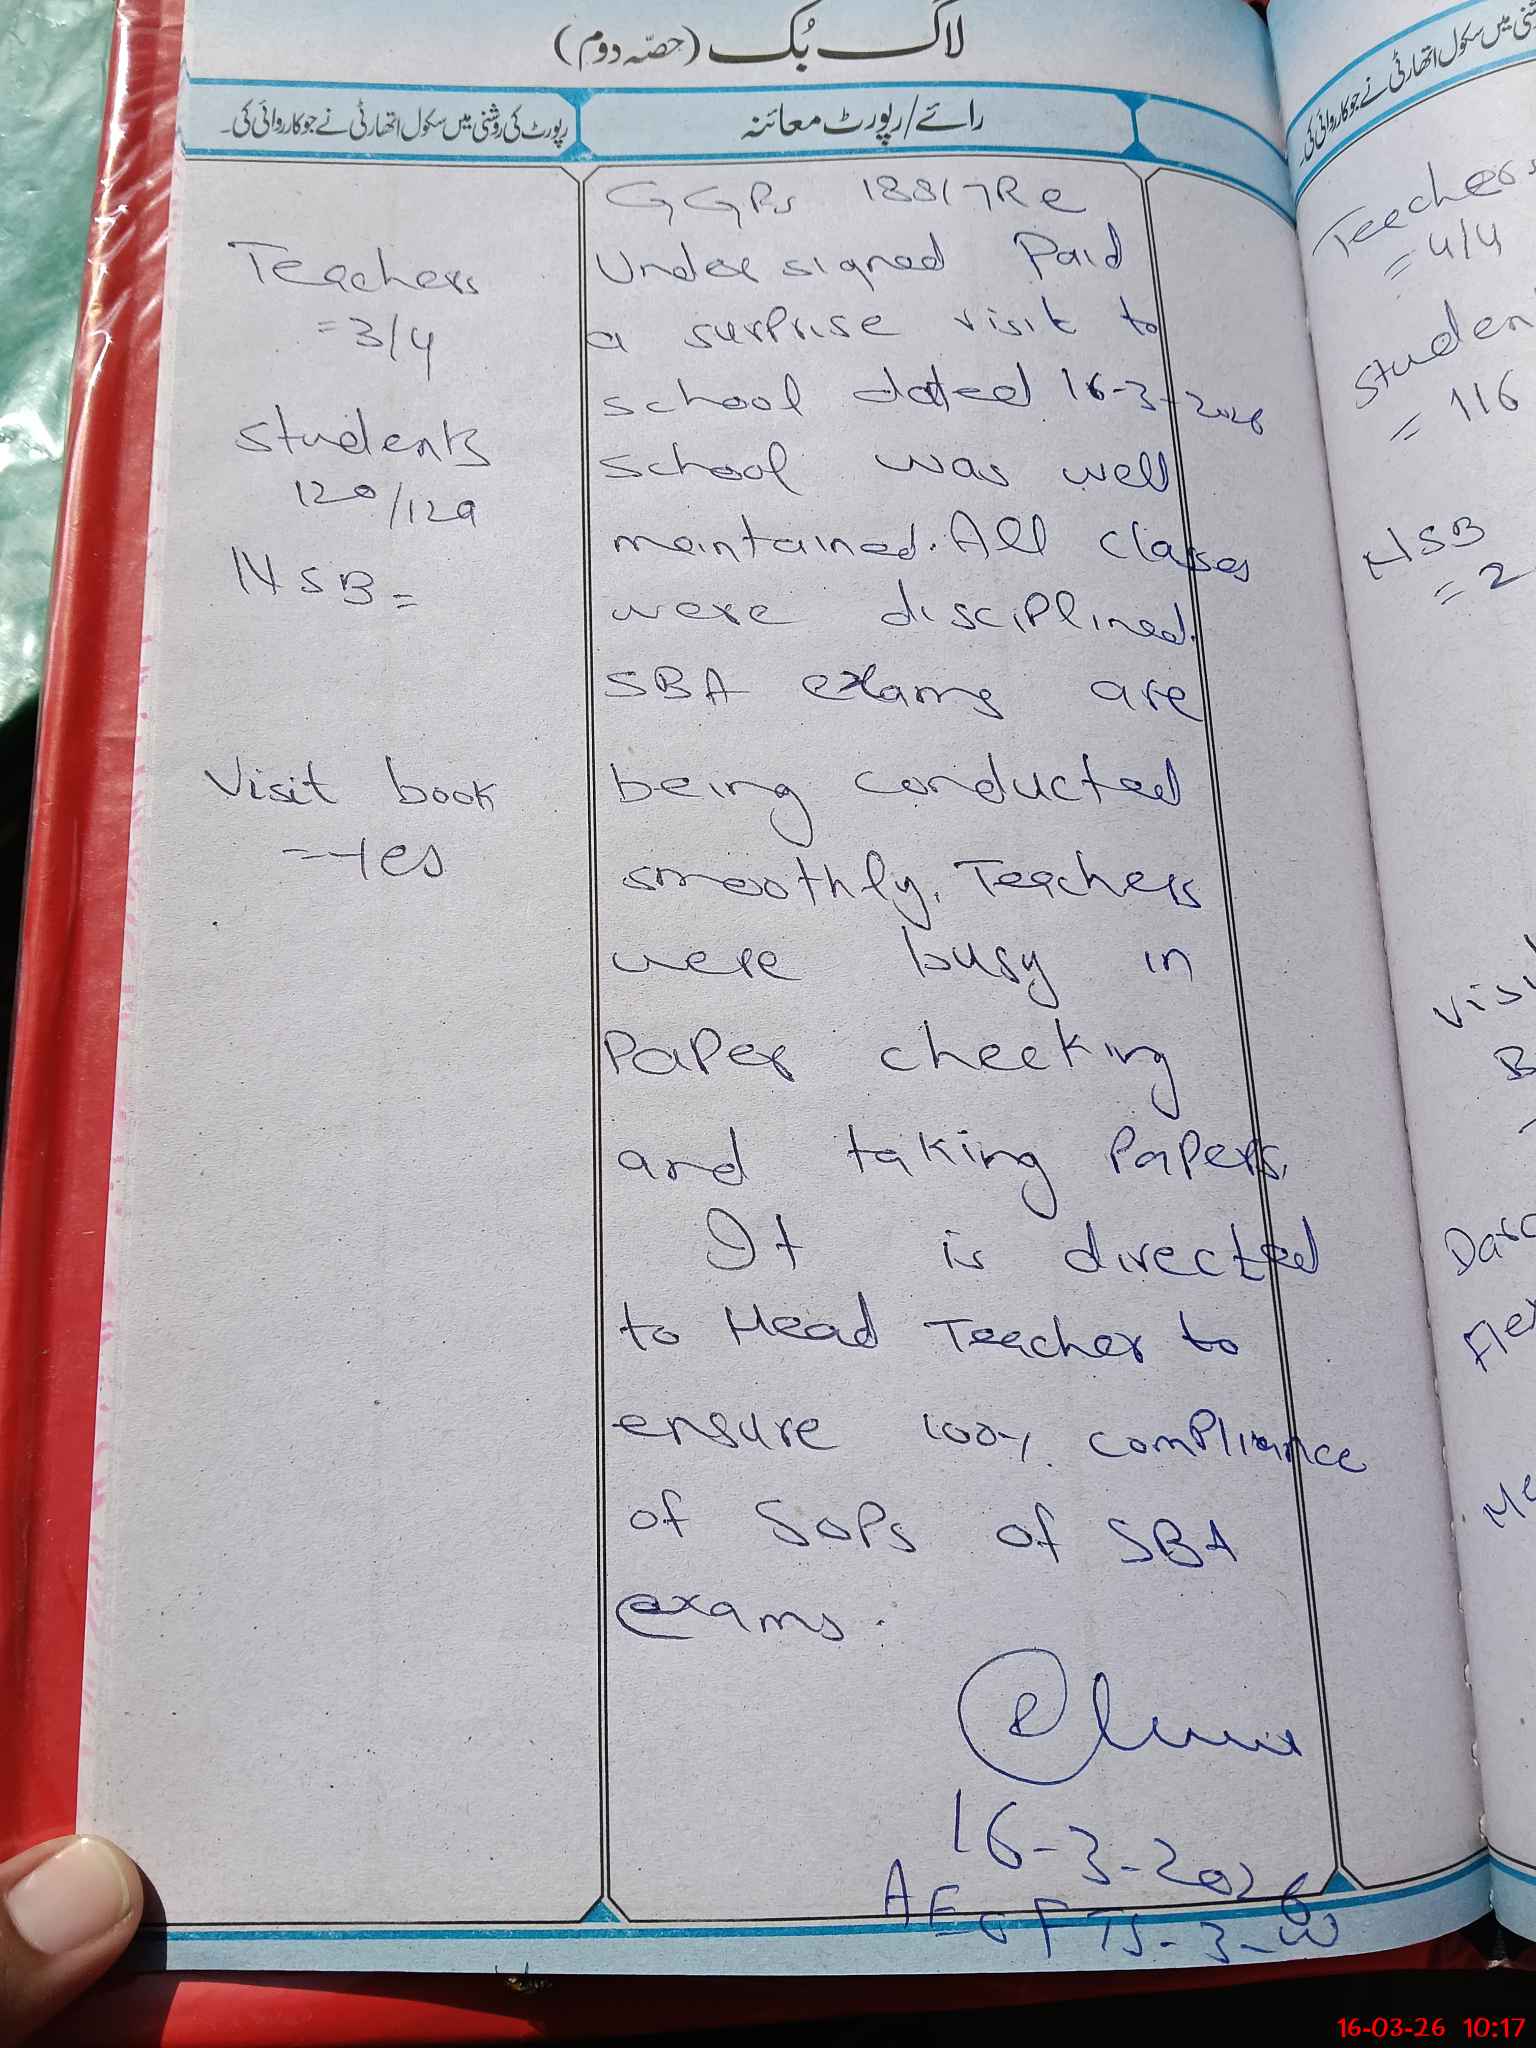 لاگ بُک (حصّہ دوم)
رائے/رپورٹ معائنہ
رپورٹ کی روشنی میں سکول اتھارٹی نے جو کارروائی کی۔
GGPS 188/7Re
Undersigned Paid
a surprise visit to
school dated 16-3-2026
school was well
maintained. All classes
were disciplined.
SBA exams are
being conducted
smoothly. Teachers
were busy in
Paper checking
and taking Papers.
It is directed
to Head Teacher to
ensure 100% compliance
of SOPs of SBA
exams.
16-3-2026
AEO FTS-3-W
Teachers
=3/4
Students
120/129
NSB=
Visit book
=Yes
سکول اتھارٹی نے جو کارروائی کی۔
Teachers
=4/4
Studen
= 116
NSB
= 2
Visi
B
16-03-26 10:17